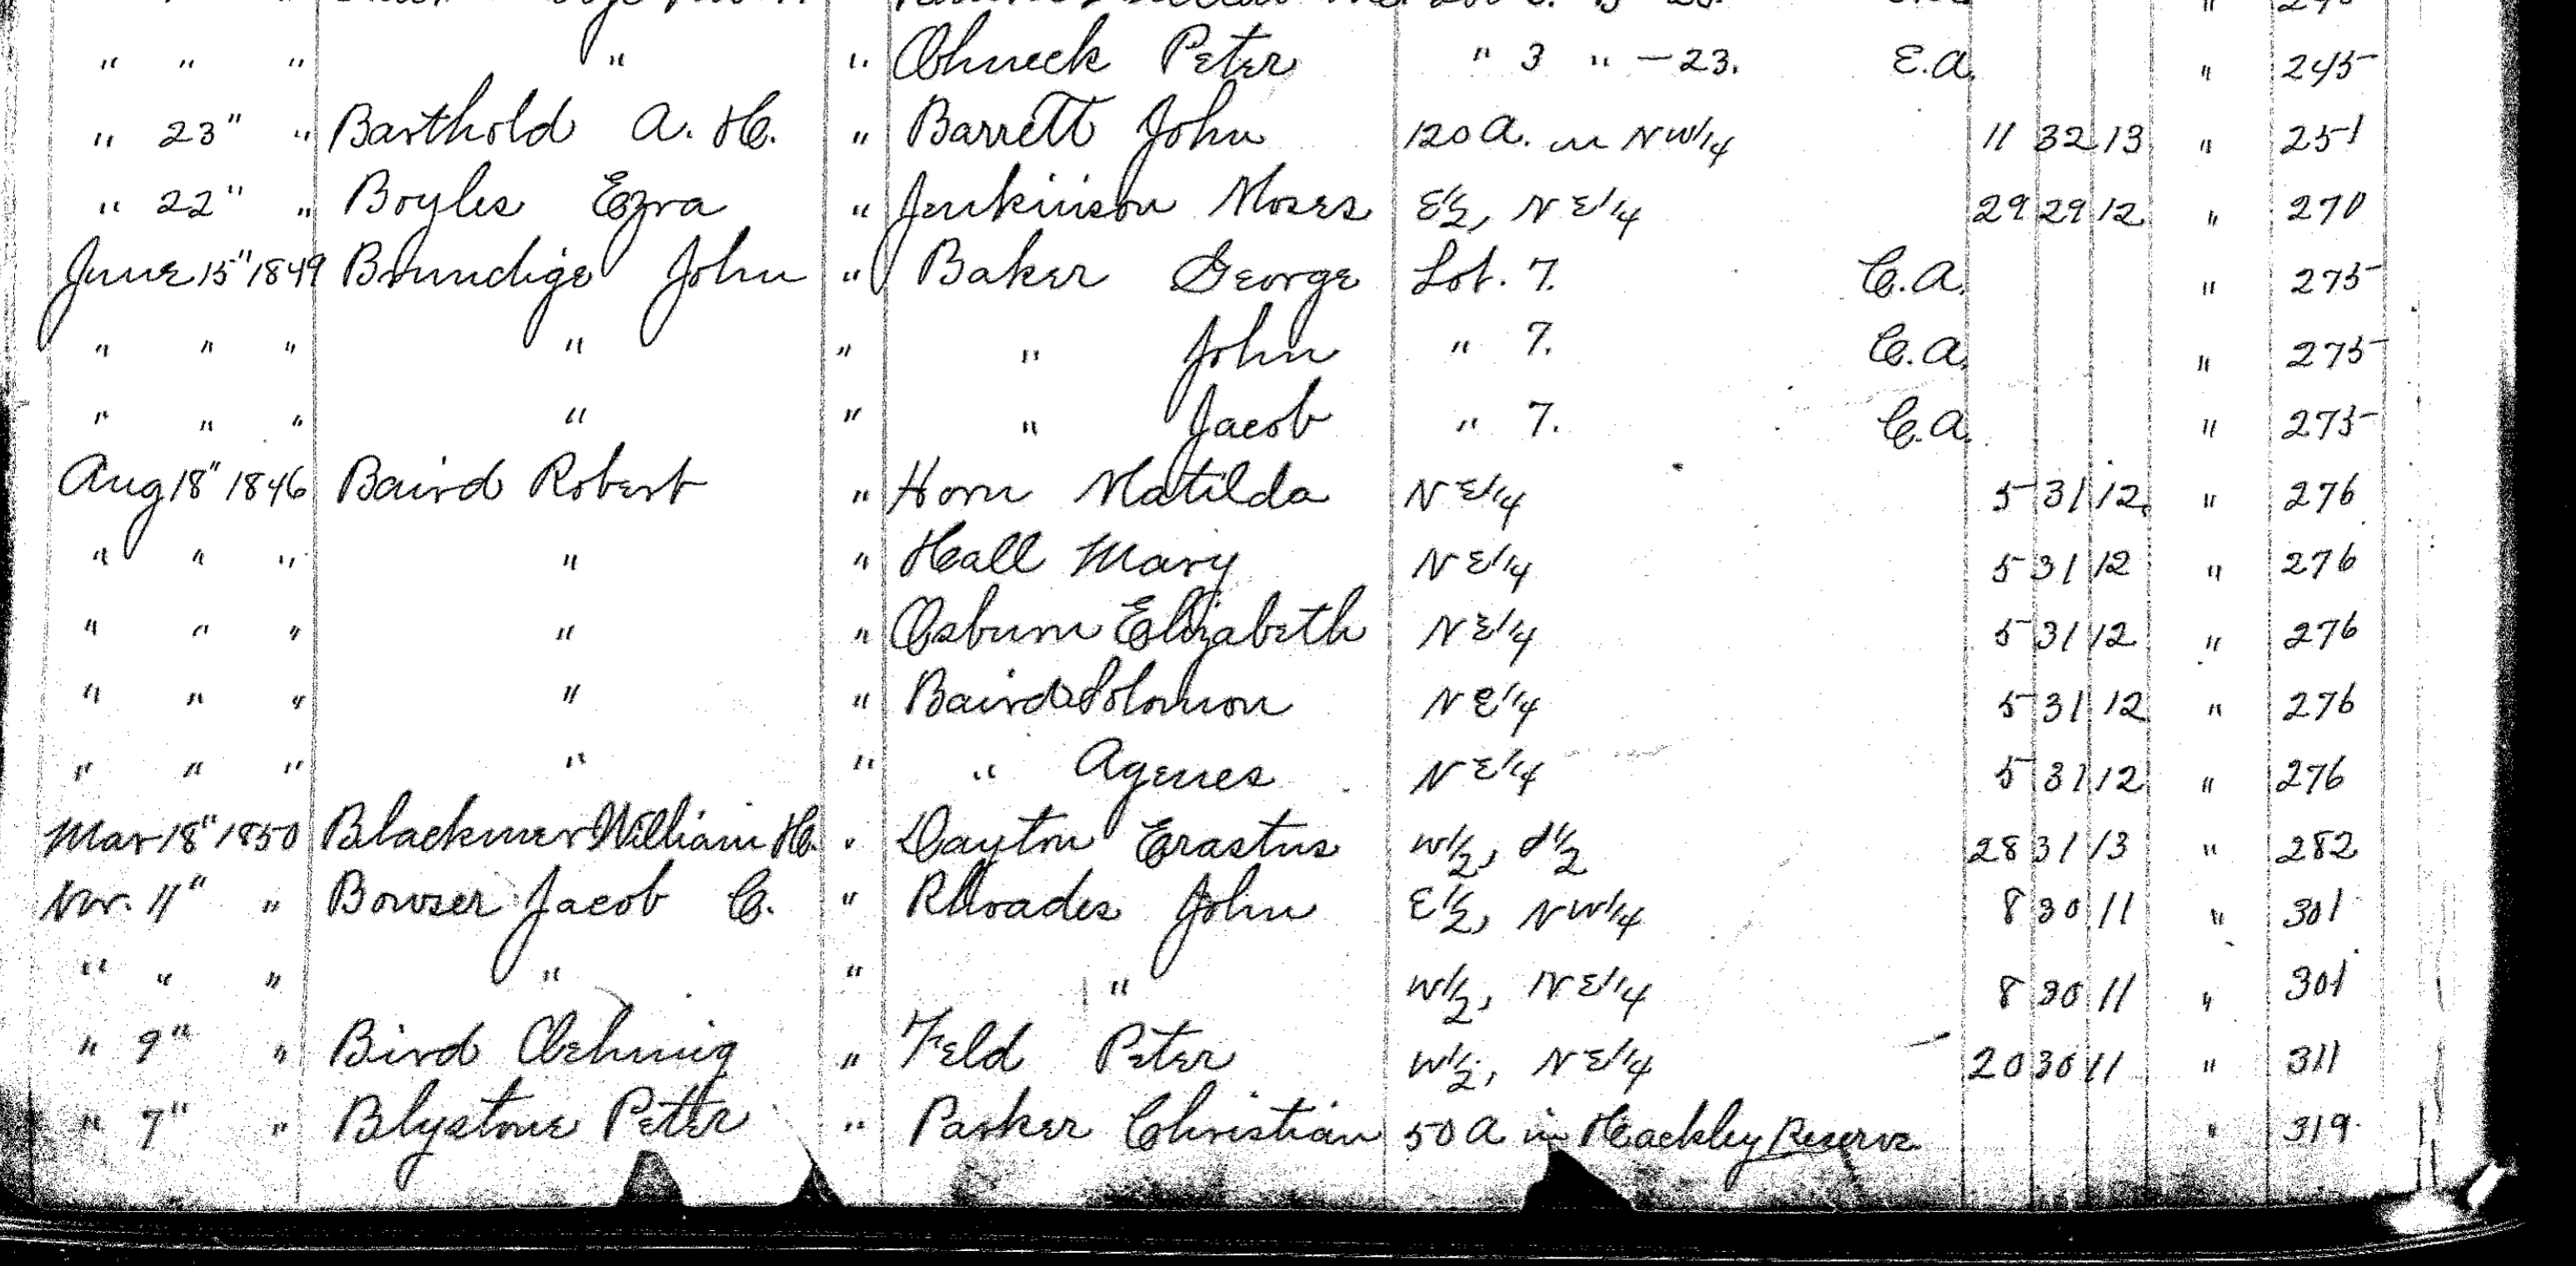 " " " " " Ohneck Peter " 3 " - 23. E.A. " 245
" 23" " Barthold A. H. " Barrett John 120 A. in NW1/4 11 32 13 " 251
" 22" " Boyles Ezra " Jenkinson Moses E1/2, NE1/4 29 29 12 " 270
June 15" 1849 Brundige John " Baker George Lot. 7. C.A. " 275
" " " " " " John " 7. C.A. " 275
" " " " " " Jacob " 7. C.A. " 275
Aug 18" 1846 Baird Robert " Horn Matilda NE1/4 5 31 12 " 276
" " " " " Hall Mary NE1/4 5 31 12 " 276
" " " " " Osburn Elizabeth NE1/4 5 31 12 " 276
" " " " " Baird Solomon NE1/4 5 31 12 " 276
" " " " " " Agenes NE1/4 5 31 12 " 276
Mar 18" 1850 Blackmer William H. " Dayton Erastus W1/2, S1/2 28 31 13 " 282
Nov. 11" " Bowser Jacob C. " Rhoades John E1/2, NW1/4 8 30 11 " 301
" " " " " " W1/2, NE1/4 8 30 11 " 301
" 9" " Bird Oehmig " Feld Peter W1/2, NE1/4 20 30 11 " 311
" 7" " Blystone Peter " Parker Christian 50 A in Hackley Reserve " 319